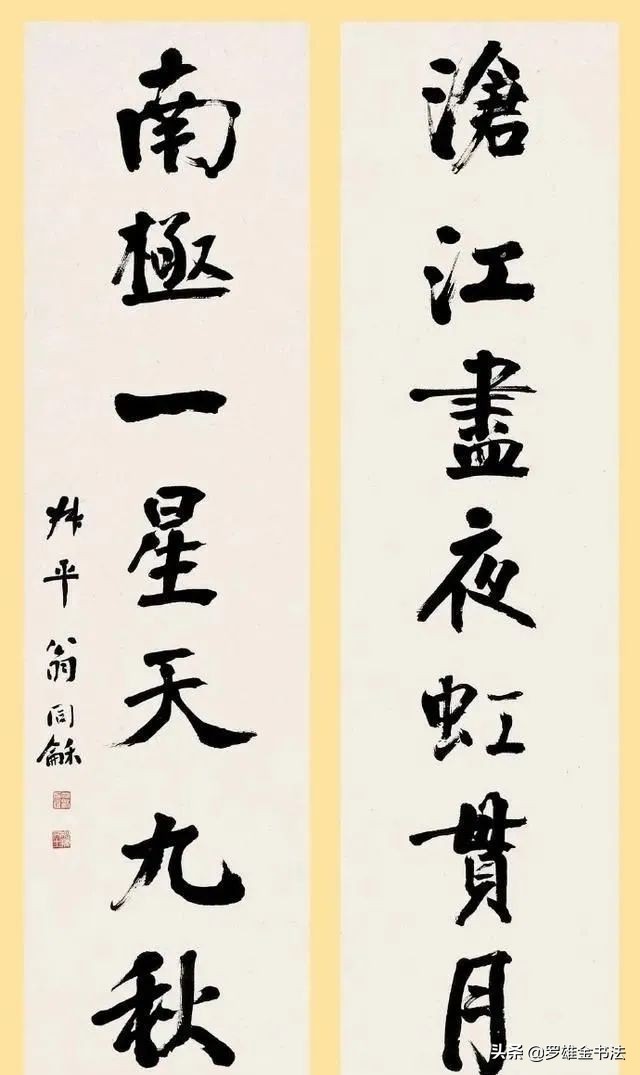 滄江盡夜虹貫月
南極一星天九秋
叔平翁同龢
头条 @罗雄金书法